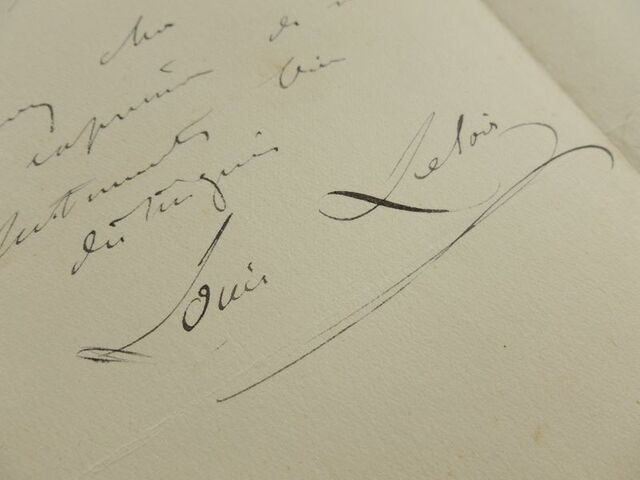 expression de
sentiments bien
distingués
Louis Leloir